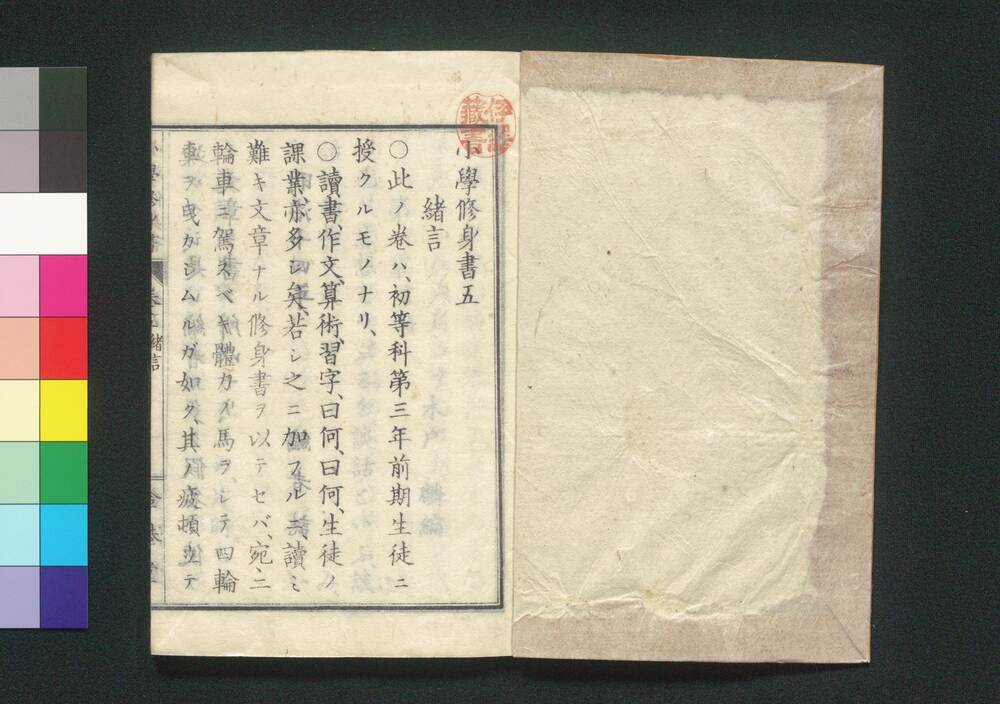 小學修身書五
緒言
〇此ノ卷ハ、初等科第三年前期生徒ニ
授クルモノナリ、
〇讀書、作文、算術、習字、曰何、曰何、生徒ノ
課業亦多シ矣、若シ之ニ加フルニ、讀ミ
難キ文章ナル修身書ヲ以テセバ、宛ニ
輪車ニ駕スベキ體力ノ馬ヲシテ四輪
車ヲ曳カシムルガ如ク、其ノ疲頓シテ
緒言
藏書